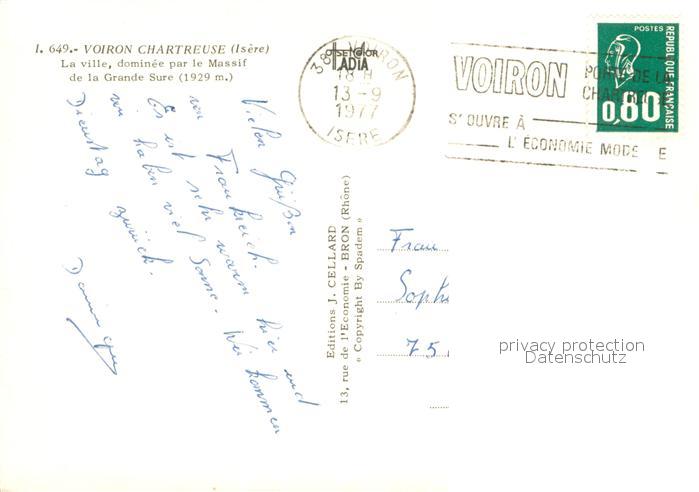 1. 649.- VOIRON CHARTREUSE (Isère)
La ville, dominée par le Massif
de la Grande Sure (1929 m.)
38 VOIRON
18 H
13-9
1977
ISERE
VOIRON
S'OUVRE À
L'ÉCONOMIE MODE E
POSTES
REPUBLIQUE FRANÇAISE
0,80
Vielen Grüßen
von Frankreich.
Es ist sehr warm hier und
wir haben viel Sonne. Wir kommen
Dienstag zurück.
Editions J. CELLARD
13, rue de l'Economie - BRON (Rhône)
« Copyright By Spadem »
Frau
Soph
75
privacy protection
Datenschutz